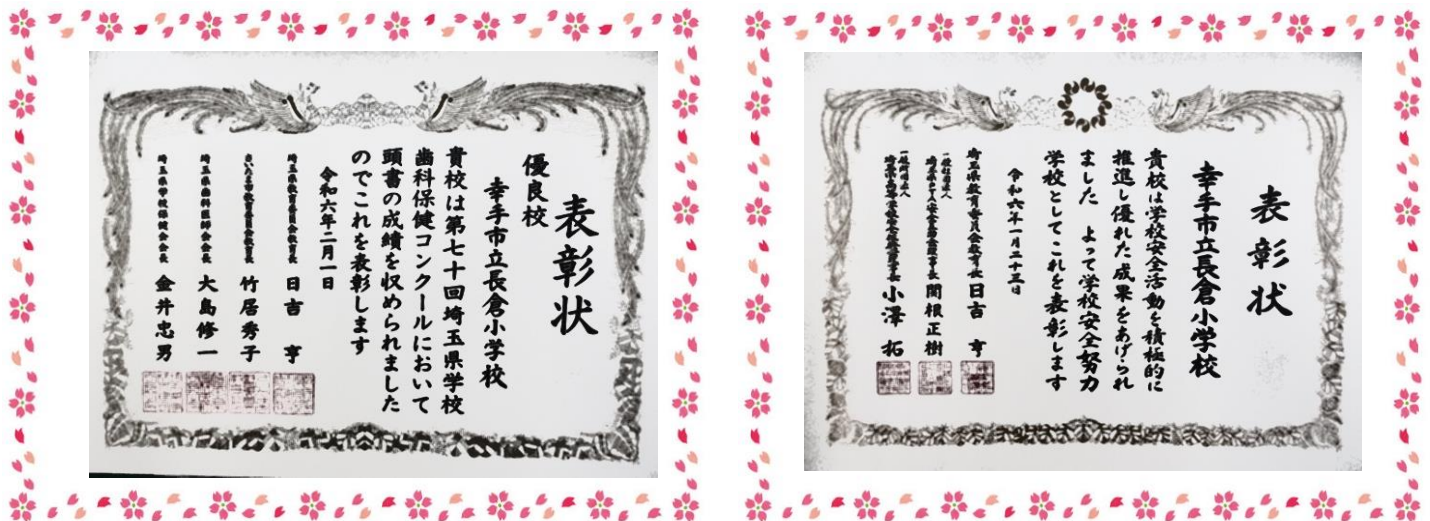 表彰状
優良校
幸手市立長倉小学校
貴校は第七十回埼玉県学校
歯科保健コンクールにおいて
頭書の成績を収められました
のでこれを表彰します
令和六年二月一日
埼玉県教育委員会教育長 日吉 亨
さいたま市教育委員会教育長 竹居秀子
埼玉県歯科医師会会長 大島修一
埼玉県学校保健会会長 金井忠男
表彰状
幸手市立長倉小学校
貴校は学校安全活動を積極的に
推進し優れた成果をあげられ
ました よって学校安全努力
学校としてこれを表彰します
令和六年一月二十三日
埼玉県教育委員会教育長 日吉 亨
一般社団法人
埼玉県PTA安全互助会理事長 関根正樹
一般財団法人
小澤 拓